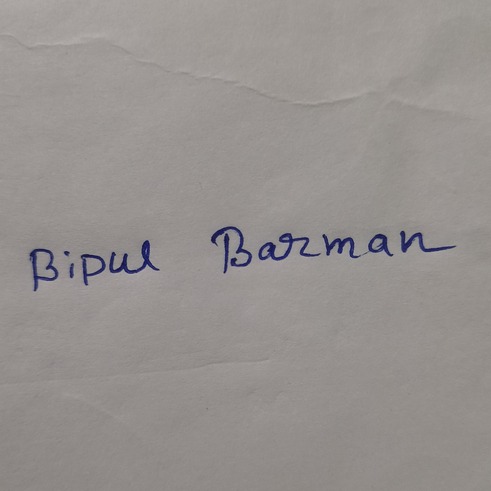 Bipul Barman